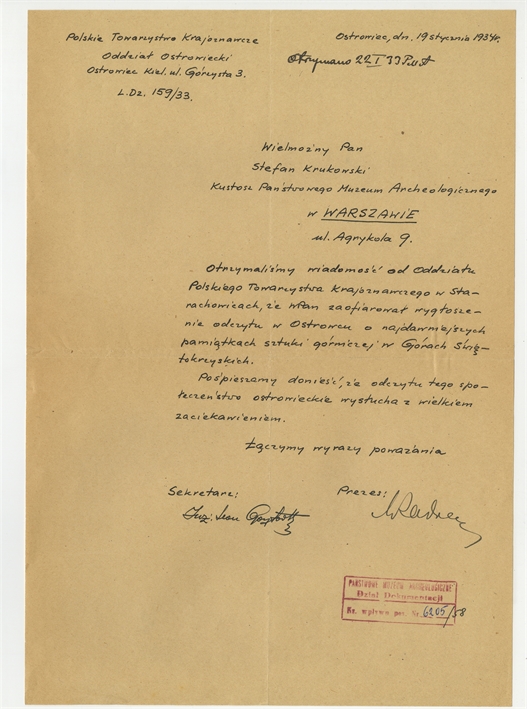 Polskie Towarzystwo Krajoznawcze
Oddział Ostrowiecki
Ostrowiec Kiel. ul. Górzysta 3.
L.Dz. 159/33.
Ostrowiec, dn. 19 stycznia 1934r.
Otrzymano 22 I 33
Wielmożny Pan
Stefan Krukowski
Kustosz Państwowego Muzeum Archeologicznego
w WARSZAWIE
ul. Agrykola 9.
Otrzymaliśmy wiadomość od Oddziału
Polskiego Towarzystwa Krajoznawczego w Sta-
rachowicach, że WPan zaofiarował wygłosze-
nie odczytu w Ostrowcu o najdawniejszych
pamiątkach sztuki górniczej w Górach Świę-
tokrzyskich.
Pośpieszamy donieść, że odczytu tego spo-
łeczeństwo ostrowieckie wysłucha z wielkiem
zaciekawieniem.
Łączymy wyrazy poważania
Sekretarz:
Prezes:
Inż. Jean
PAŃSTWOWE MUZEUM ARCHEOLOGICZNE
Dział Dokumentacji
Nr. wpływu 6205/58